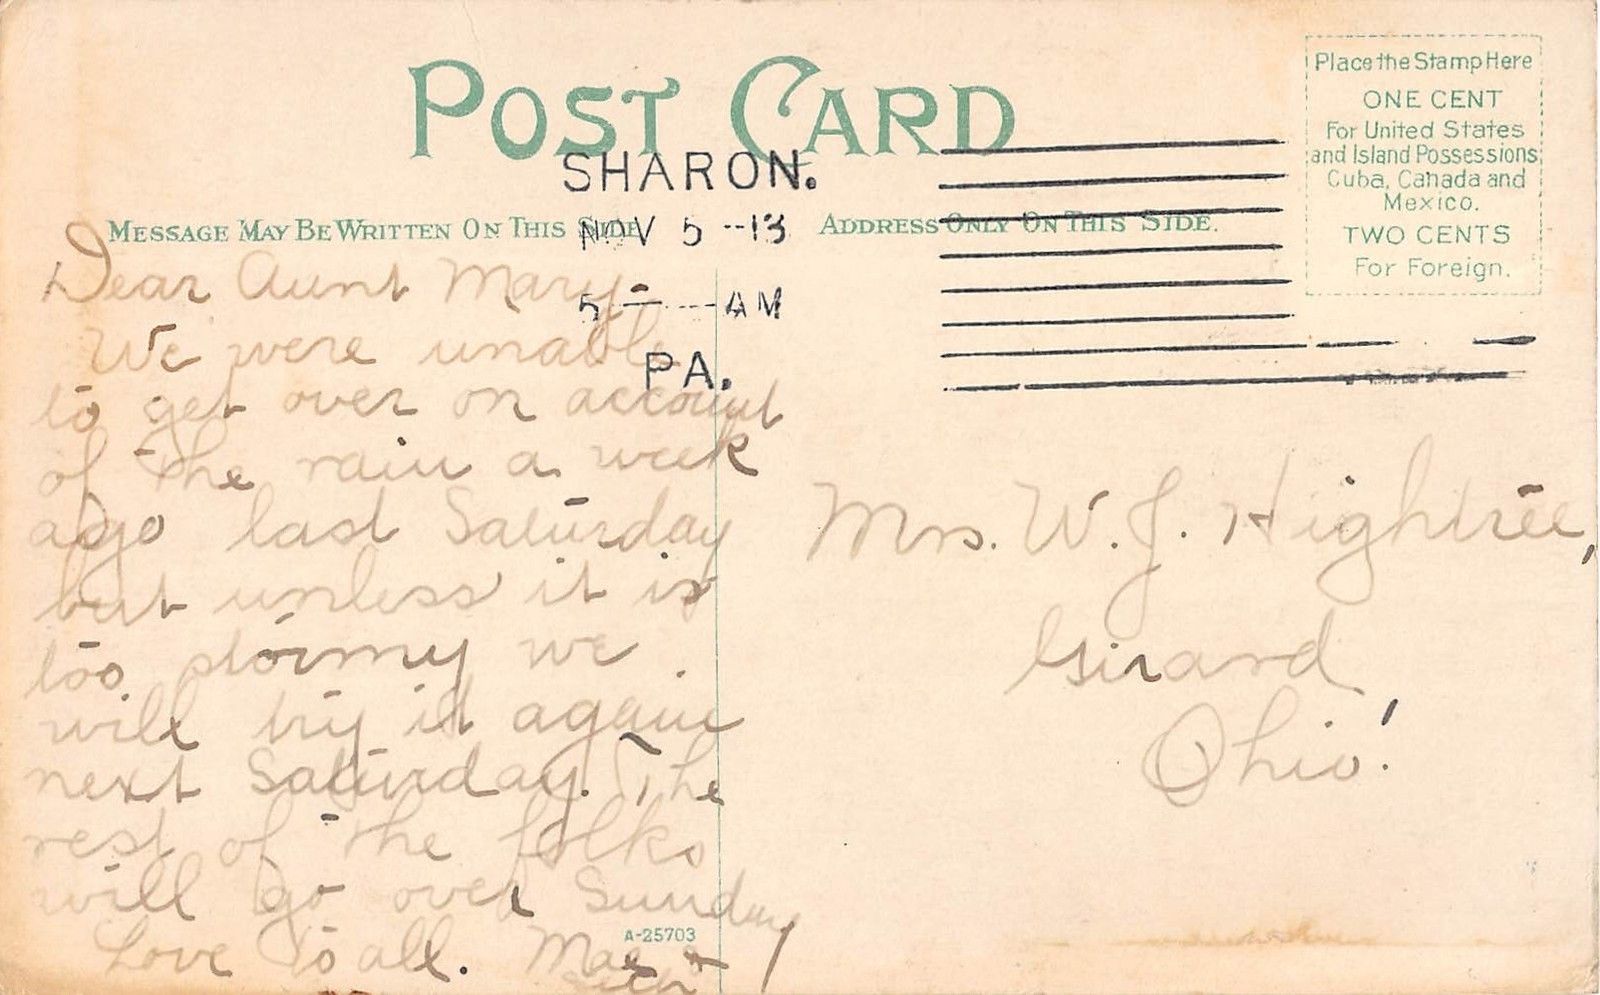 POST CARD
Place the Stamp Here
ONE CENT
For United States
and Island Possessions,
Cuba, Canada and
Mexico.
TWO CENTS
For Foreign.
SHARON.
NOV 5 --13
5 — AM
PA.
MESSAGE MAY BE WRITTEN ON THIS SIDE
ADDRESS ONLY ON THIS SIDE.
Dear Aunt Mary
We were unable
to get over on account
of the rain a week
ago last Saturday
but unless it is
too stormy we
will try it again
next Saturday. The
rest of the folks
will go over Sunday
Love to all. Mae &
A-25703
Mrs. W. J. Hightree,
Girard
Ohio.